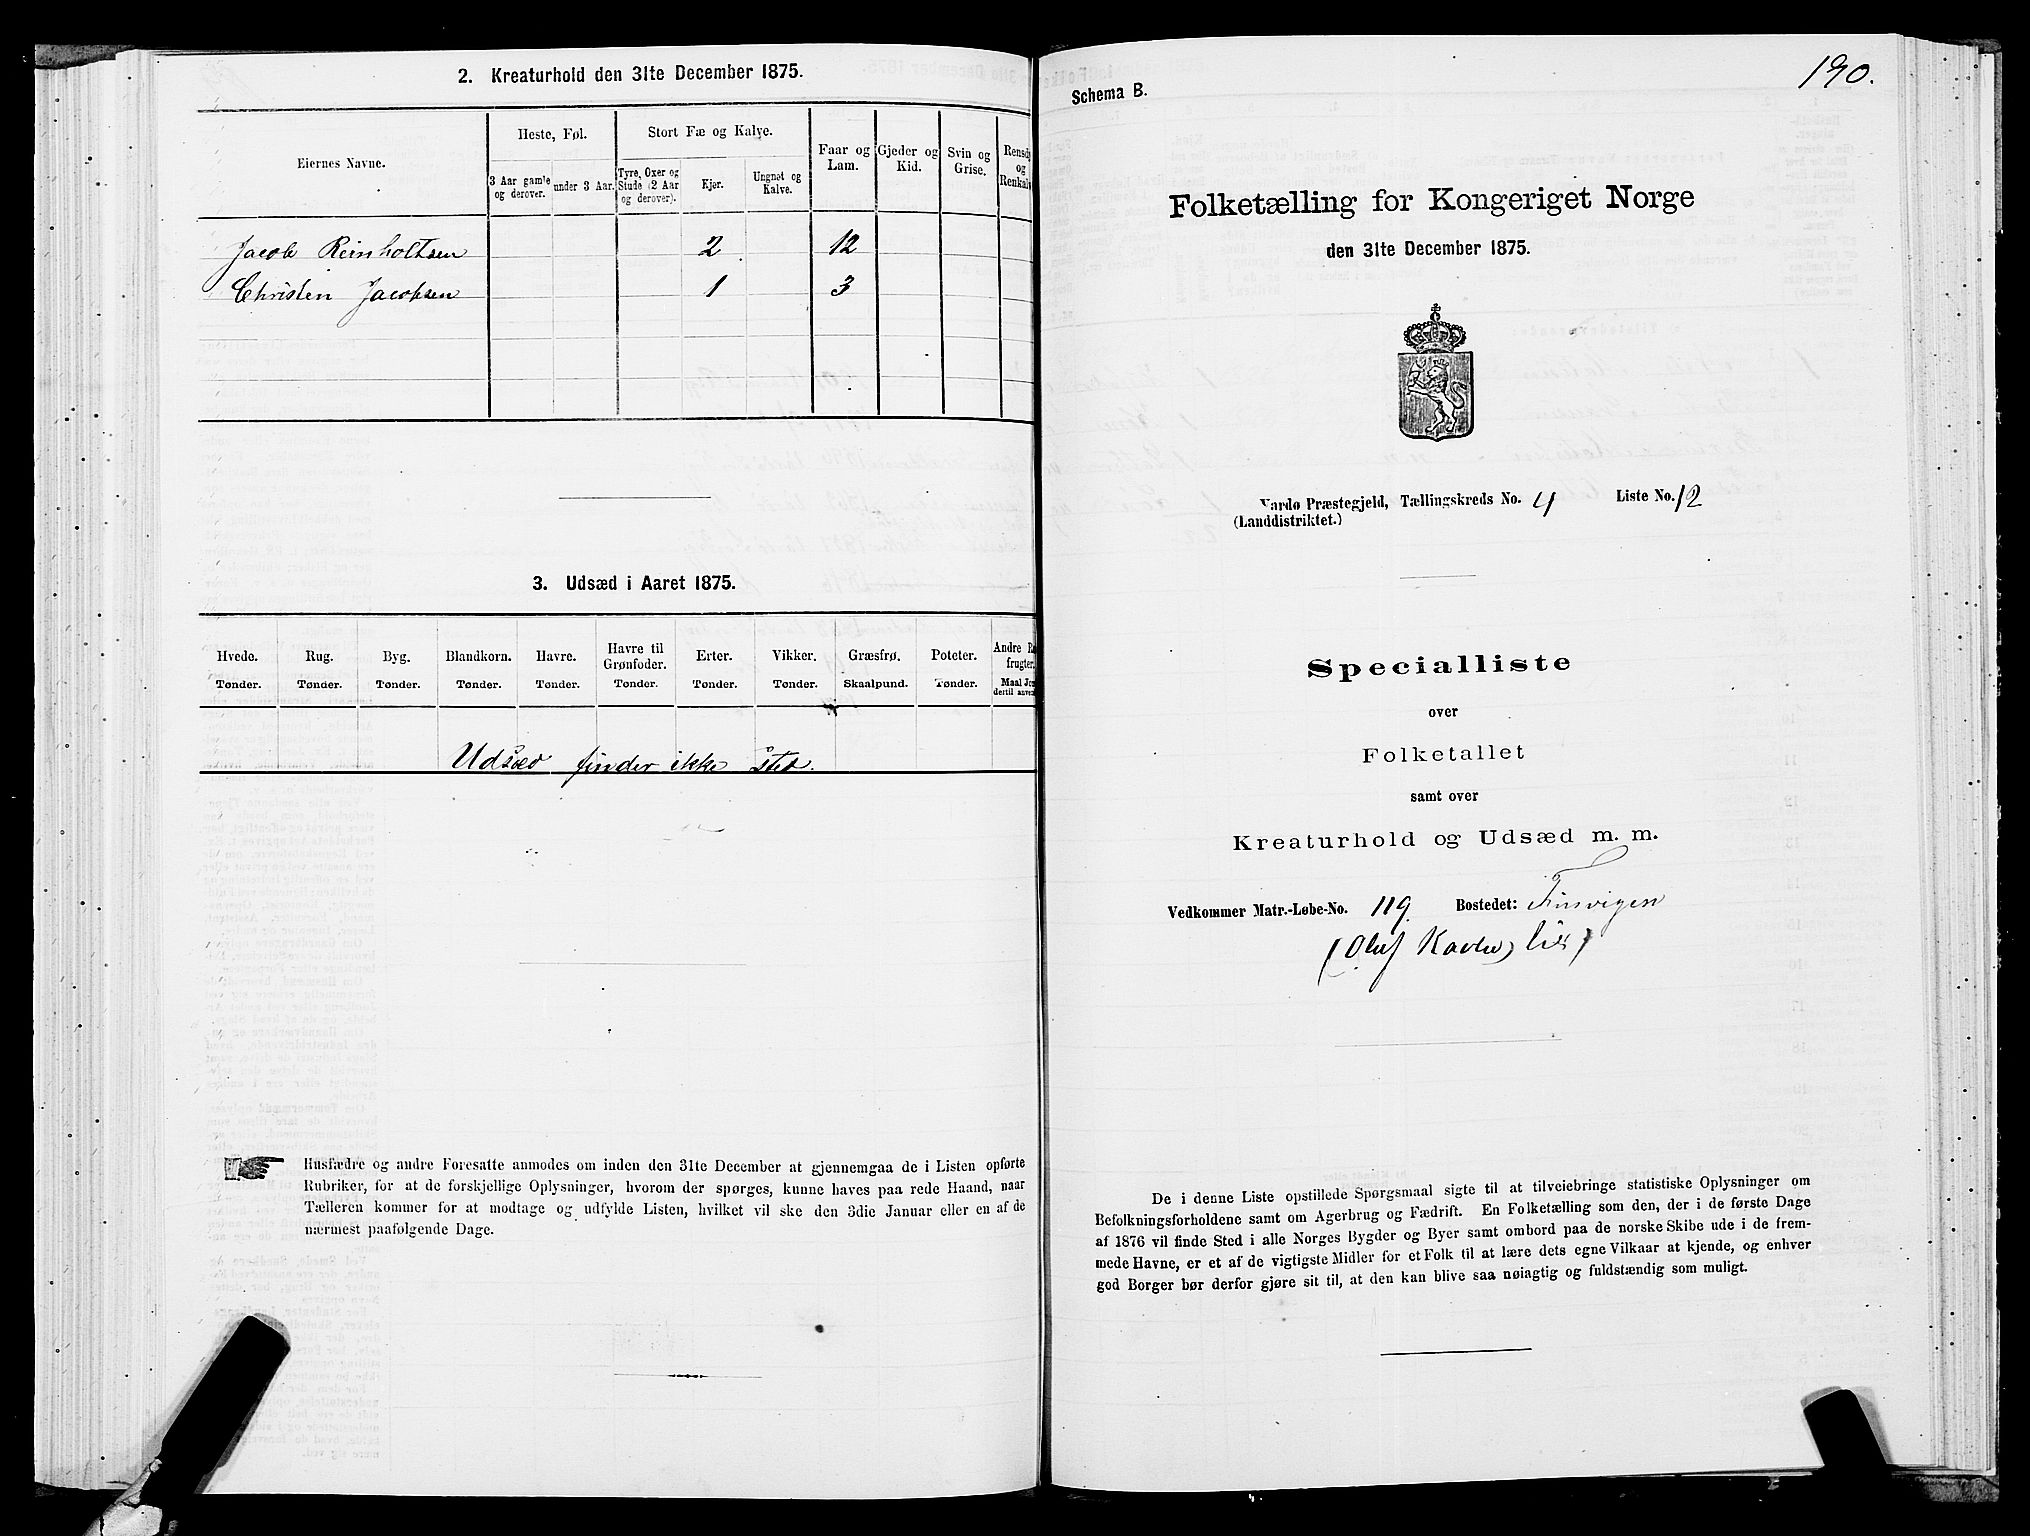 2. Kreaturhold den 31te December 1875.
Eiernes Navne.
Heste, Føl.
Stort Fæ og Kalve.
Faar og Lam.
Gjeder og Kid.
Svin og Grise.
Rensd
og
Renkalv
3 Aar gamle og derover.
under 3 Aar.
Tyre, Oxer og Stude (2 Aar og derover).
Kjør.
Ungnøt og Kalve.
Jacob Reinholtsen 2 12
Christen Jacobsen 1 3
3. Udsæd i Aaret 1875.
Hvede. Rug. Byg. Blandkorn. Havre. Havre til Grønfoder. Erter. Vikker. Græsfrø. Poteter. Andre R
frugter.
Tønder. Tønder. Tønder. Tønder. Tønder. Tønder. Tønder. Tønder. Skaalpund. Tønder. Maal Jo
dertil anve
Udsæd finder ikke sted.
Husfædre og andre Foresatte anmodes om inden den 31te December at gjennemgaa de i Listen opførte
Rubriker, for at de forskjellige Oplysninger, hvorom der spørges, kunne haves paa rede Haand, naar
Tælleren kommer for at modtage og udfylde Listen, hvilket vil ske den 3die Januar eller en af de
nærmest paafølgende Dage.
190.
Schema B.
Folketælling for Kongeriget Norge
den 31te December 1875.
Vardø Præstegjeld, Tællingskreds No. 4 Liste No. 12
(Landdistriktet.)
Specialliste
over
Folketallet
samt over
Kreaturhold og Udsæd m. m.
Vedkommer Matr.-Løbe-No. 119. Bostedet: Finsvigen
(Oluf
De i denne Liste opstillede Spørgsmaal sigte til at tilveiebringe statistiske Oplysninger om
Befolkningsforholdene samt om Agerbrug og Fædrift. En Folketælling som den, der i de første Dage
af 1876 vil finde Sted i alle Norges Bygder og Byer samt ombord paa de norske Skibe ude i de frem-
mede Havne, er et af de vigtigste Midler for et Folk til at lære dets egne Vilkaar at kjende, og enhver
god Borger bør derfor gjøre sit til, at den kan blive saa nøiagtig og fuldstændig som muligt.